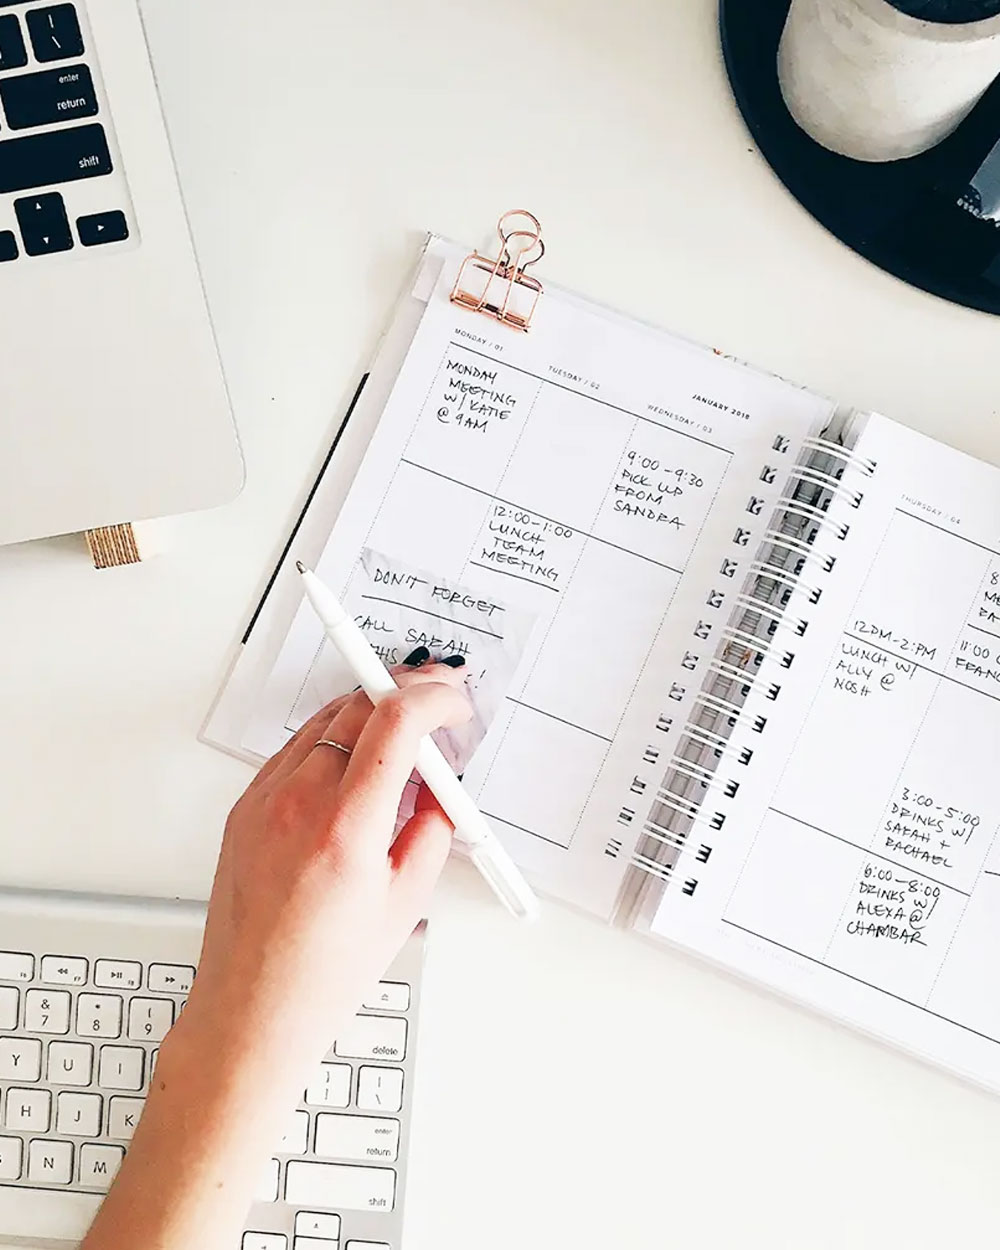 enter
return
shift
MONDAY / 01
MONDAY
MEETING
W/ KATIE
@ 9AM
TUESDAY / 02
12:00-1:00
LUNCH
TEAM
MEETING
JANUARY 2018
WEDNESDAY / 03
9:00-9:30
PICK UP
FROM
SANDRA
DON'T FORGET
CALL SARAH
THIS
THURSDAY / 04
12PM-2:PM
LUNCH W/
ALLY @
NOSH
3:00-5:00
DRINKS W/
SARAH +
RACHAEL
6:00-8:00
DRINKS W/
ALEXA @
CHAMBAR
8
ME
11:00
FRAN
F7
F8
F9
& 7
* 8
( 9
delete
Y U I
} ]
| \
H J K
enter
return
N M
shift